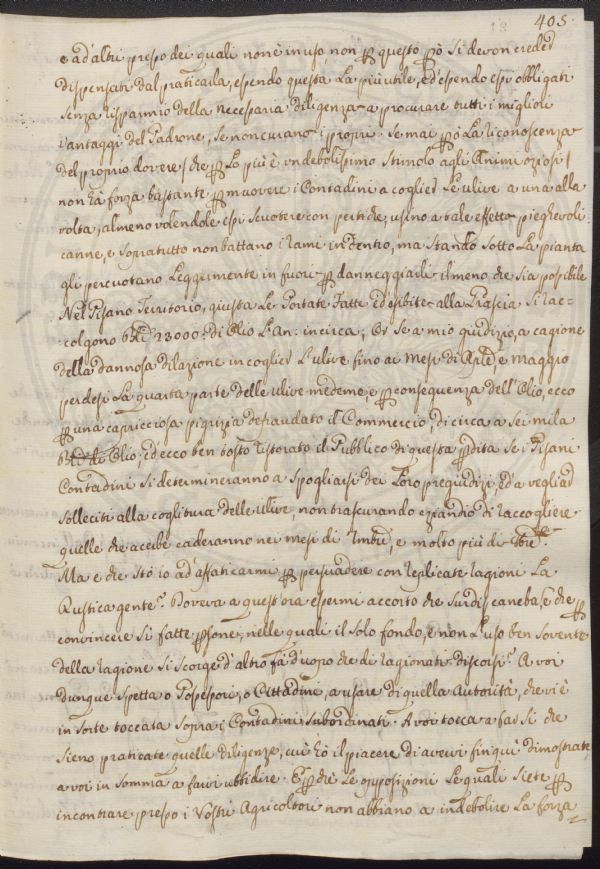 13 405.
e ad'altri presso dei quali non è in uso, non per questo però si devon creder
dispensati dal praticarla, essendo questa la più utile, ed essendo essi obbligati
senza risparmio della necessaria diligenza a procurare tutti i migliori
vantaggi del Padrone, se non curano i proprj. Se mai però la riconoscenza
del proprio dovere / che per lo più è un debolissimo stimolo agli Animi oziosi /
non hà forza bastante per muovere i Contadini a coglier le ulive a una alla
volta, almeno volendole essi scuotere con pertiche, usino a tale effetto pieghevoli
canne, e sopratutto non battano i rami in dentro, ma stando sotto la pianta
gli percuotano leggermente in fuori per danneggiarli il meno che sia possibile
Nel Pisano Territorio, giusta le Portate fatte ed esibite alla Grascia si rac-
colgono 23000: di Olio l'An: incirca; Or se a mio giudizio, a cagione
della dannosa dilazione in coglier l'ulive fino ai mesi di Aprle, e Maggio
perdesi la quarta parte delle ulive medeme, e per conseguenza dell'Olio, ecco
per una capricciosa pigrizia defraudato il Commercio, di circa a sei mila
di Olio, ed ecco ben tosto ristorato il Pubblico di questa perdita se i Pisani
Contadini si determineranno a spogliarsi dei loro pregiudizj, ed a vegliar
solleciti alla coglitura delle ulive, non trascurando eziandio di raccogliere
quelle che acerbe caderanno nei mesi di 9mbre, e molto più di Xbre.
Ma e che stò io ad'affaticarmi per persuadere con replicate ragioni la
Rustica gente? Doveva a quest'ora essermi accorto che surdis caneba, e che per
convincere si fatte persone, nelle quali il solo fondo, e non l'uso ben sovente
della ragione si scorge d'altro fà d'uopo che di ragionati discorsi. A voi
dunque spetta o Possessori, o Cittadini, a usare di quella Autorità, che vi è
in sorte toccata sopra i Contadini subordinati. A voi tocca a far si che
sieno praticate quelle diligenze, cui hò il piacere di avervi fin quì dimostrate
a voi in somma a farvi ubbidire. E perchè le opposizioni le quali siete per
incontrare presso i Vostri Agricoltori non abbiano a indebolire la forza